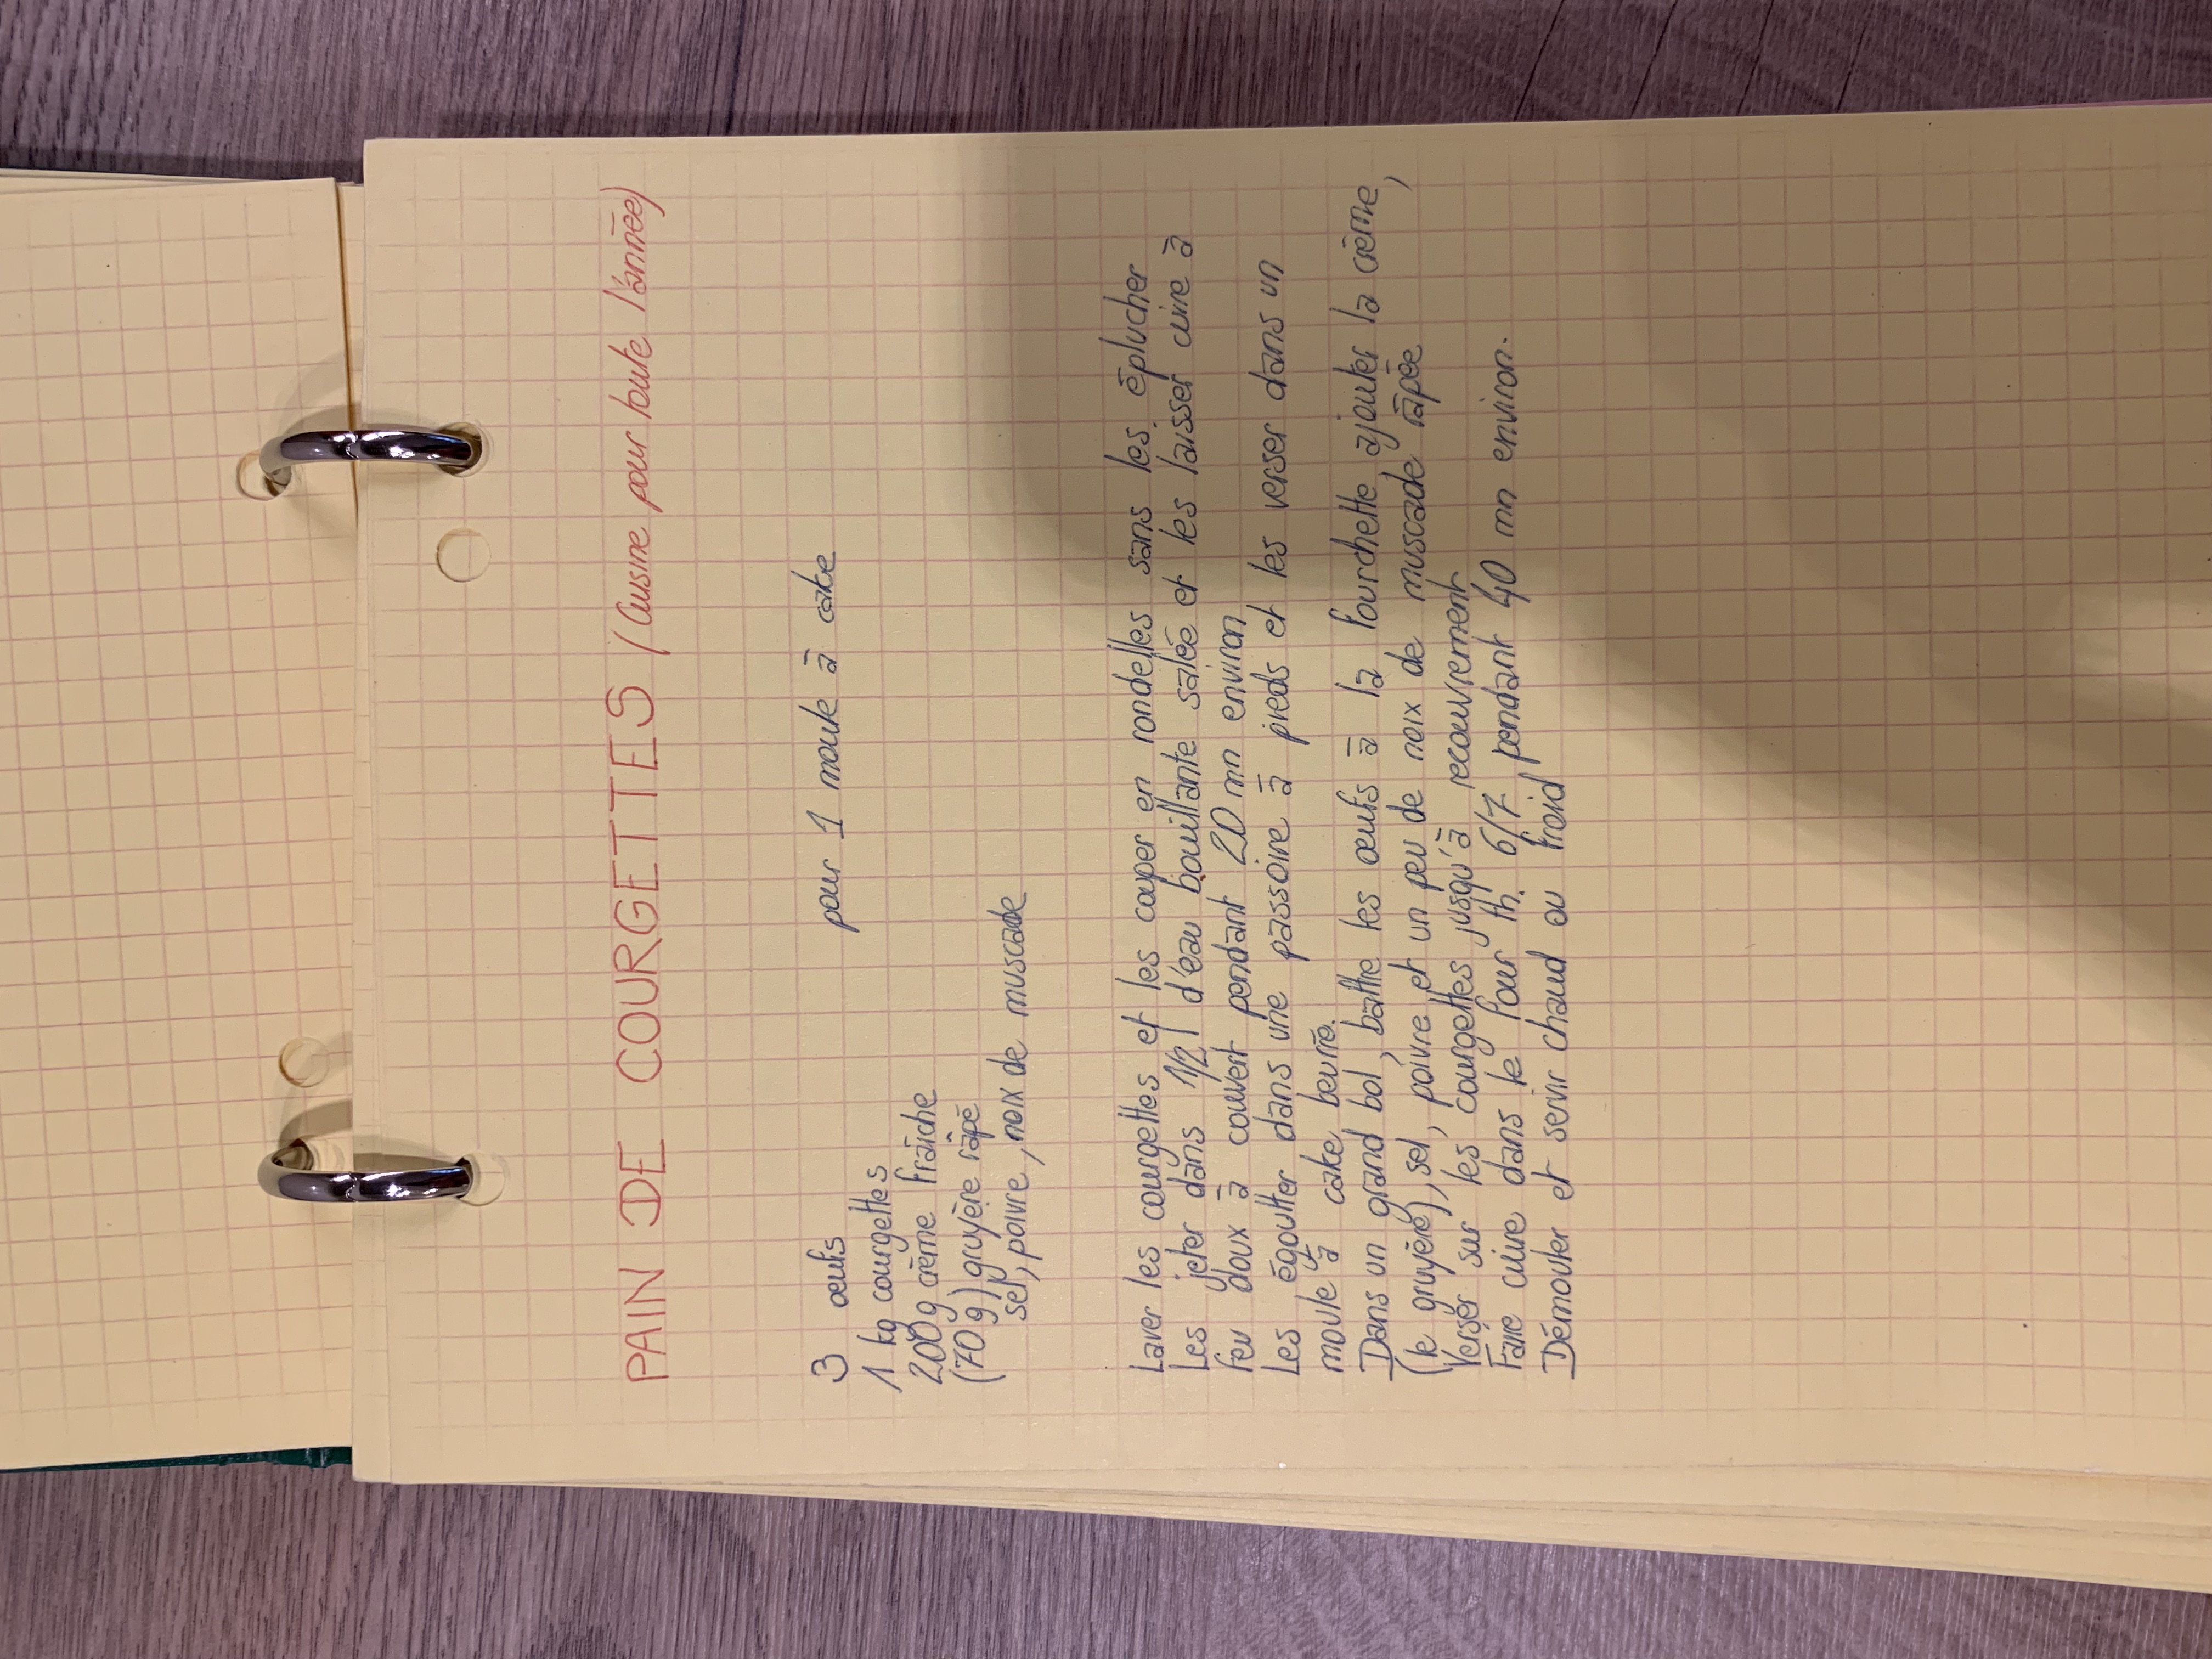 PAIN DE COURGETTES (Cuisine pour toute l'année)
pour 1 moule à cake
3 œufs
1 kg courgettes
200g crème fraîche
(70 g) gruyère râpé
sel, poivre, noix de muscade
Laver les courgettes et les couper en rondelles sans les éplucher
Les jeter dans 1/2 l d'eau bouillante salée et les laisser cuire à
feu doux à couvert pendant 20 mn environ
Les égoutter dans une passoire à pieds et les verser dans un
moule à cake beurré.
Dans un grand bol, battre les œufs à la fourchette ajouter la crème,
(le gruyère), sel, poivre et un peu de noix de muscade râpée
Verser sur les courgettes jusqu'à recouvrement
Faire cuire dans le four th. 6/7 pendant 40 mn environ.
Démouler et servir chaud ou froid